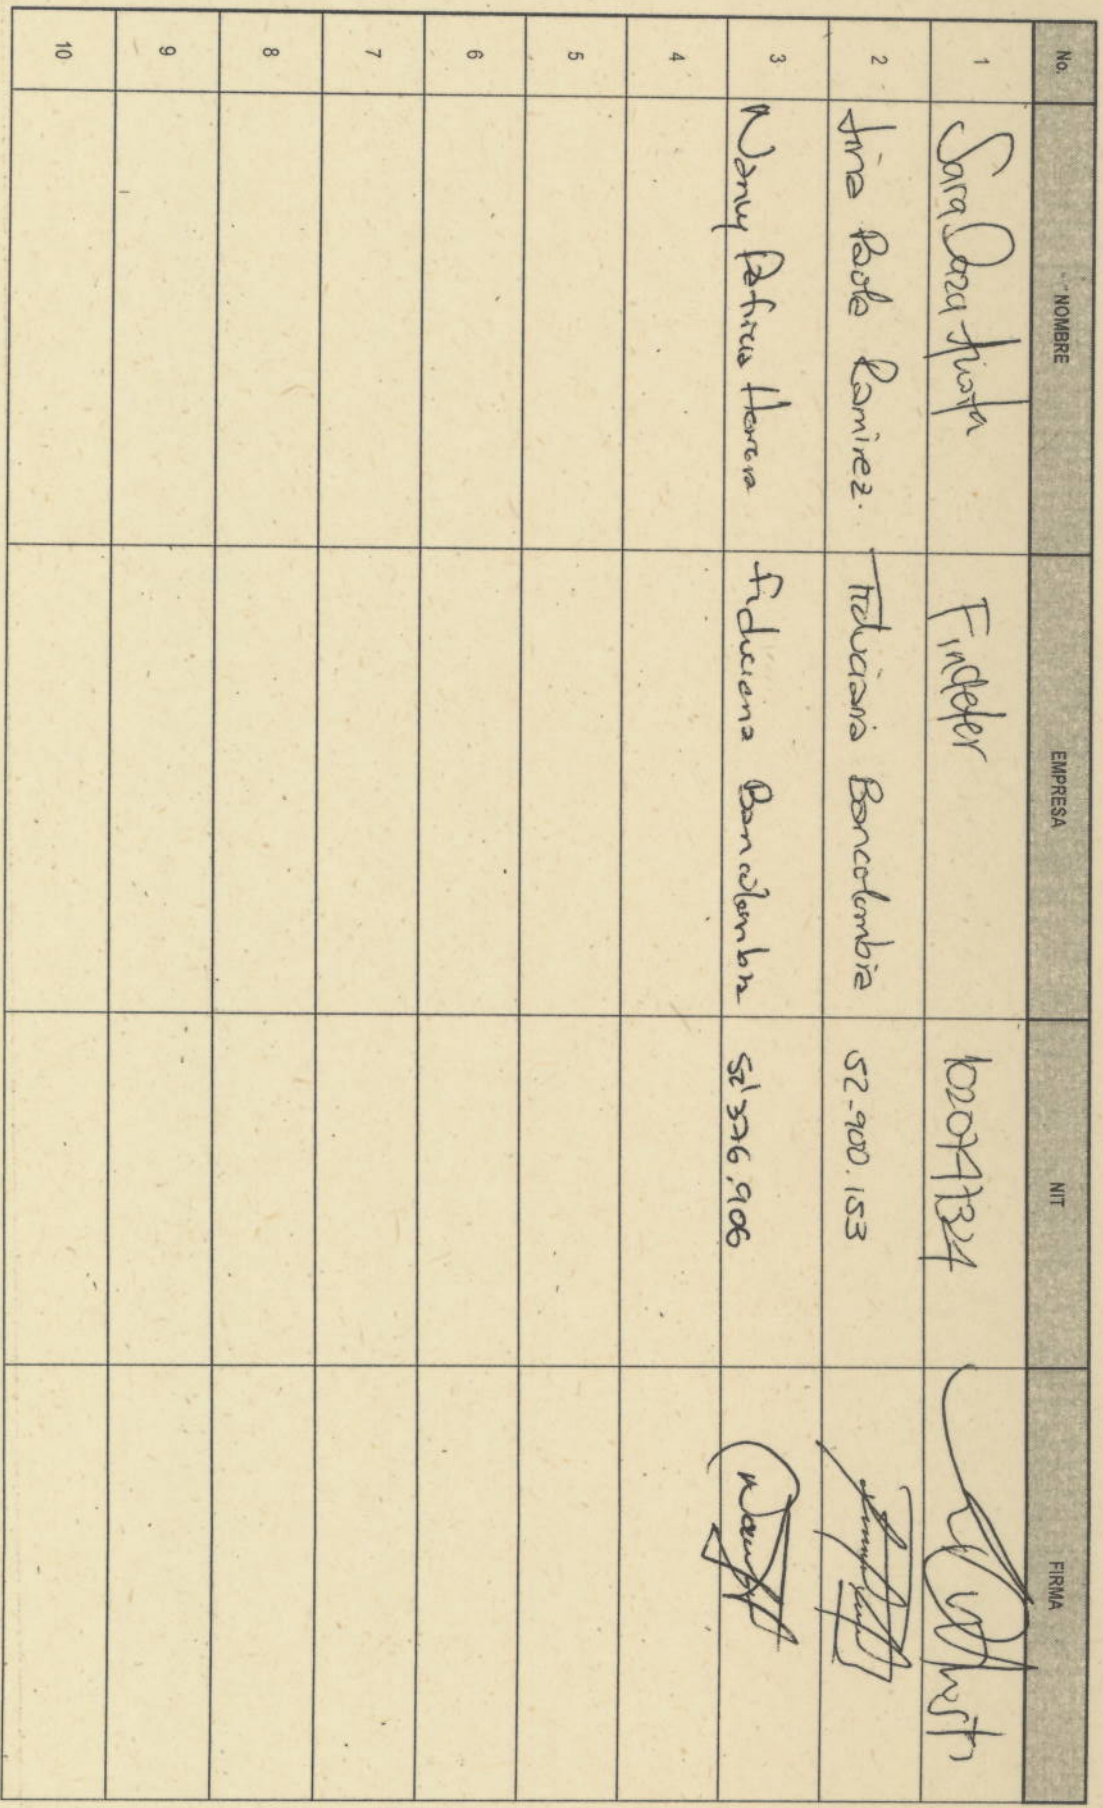 No. NOMBRE EMPRESA NIT FIRMA
1 Sara Daza Findeter 1020747324
2 Paola Ramirez. Fiduciaria Bancolombia 52-900.153
3 Nancy Patricia Herrera Fiduciaria Bancolombia 52'376.906
4
5
6
7
8
9
10